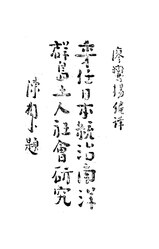 廖鸞揚編譯
委任日本統治南洋
群島土人社會研究
陳 題